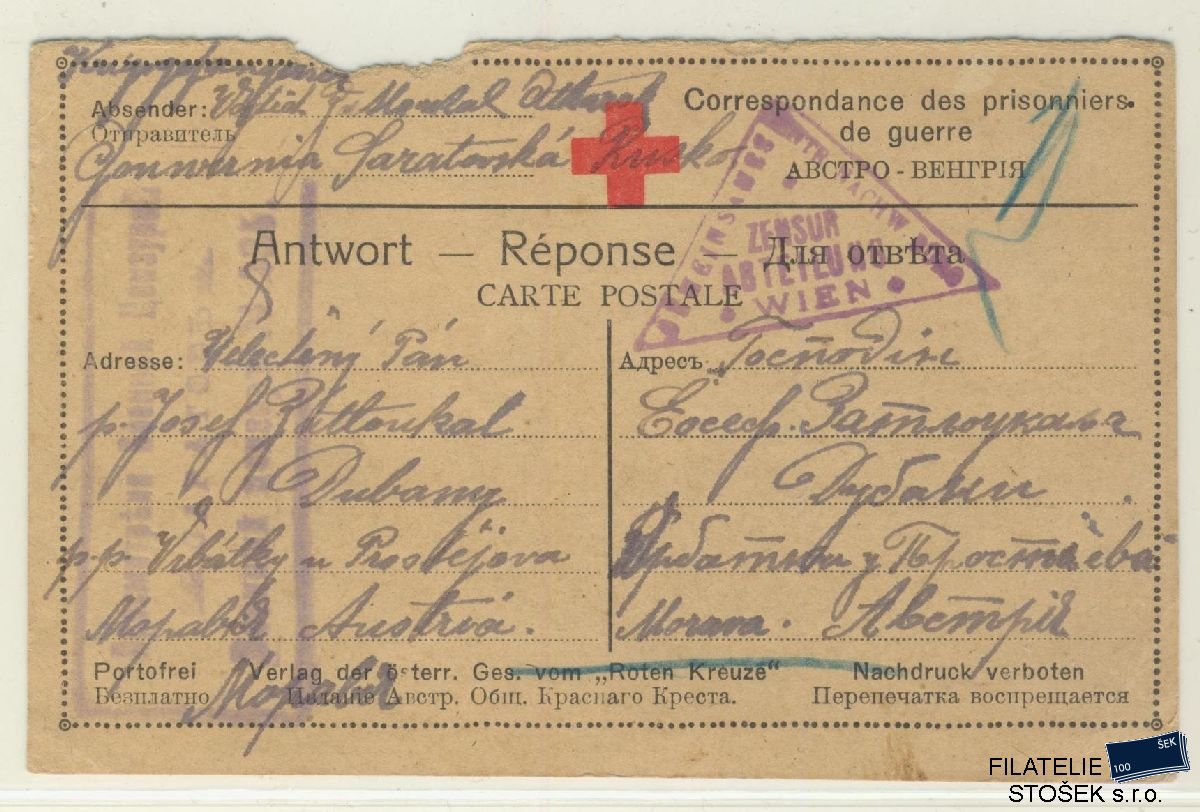 Absender:
Отправитель
Gouvernia Saratovská
Correspondance des prisonniers
de guerre
АВСТРО - ВЕНГРІЯ
Antwort — Réponse — Для отвѣта
CARTE POSTALE
ZENSUR
ABTEILUNG
WIEN
Adresse: Velectěný Pán
p. Josef Zatloukal
Dubany
p.p. Vrbátky u Prostějova
Моравія Austria.
Адресъ Господін
Еосеф. Затлоукалъ
Дубани
Врбатки у Простѣева
Morava. Австрія
Portofrei Verlag der österr. Ges. vom „Roten Kreuze“ Nachdruck verboten
Безплатно Изданіе Австр. Общ. Краснаго Креста. Перепечатка воспрещается
Моравія
FILATELIE
STOŠEK s.r.o.
100 ŠEK